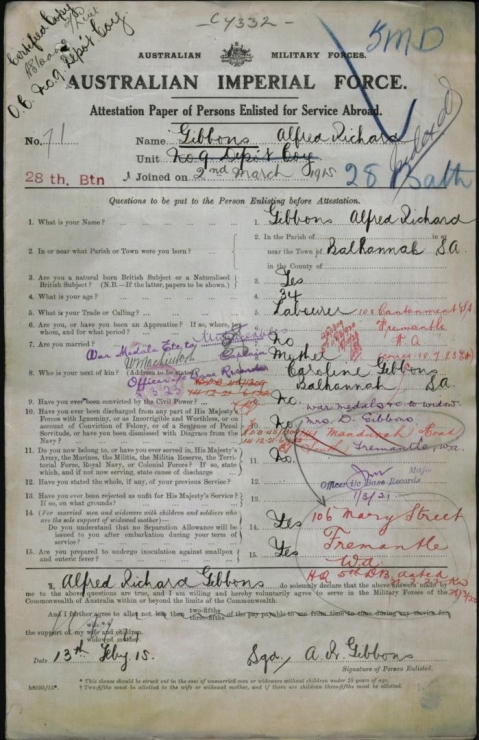 C4332
Certified Copy
O.C. No.9 Depot Coy
5MD
AUSTRALIAN MILITARY FORCES.
AUSTRALIAN IMPERIAL FORCE.
Attestation Paper of Persons Enlisted for Service Abroad.
No. 71 Name Gibbons Alfred Richard
Unit No 9 Depot Coy
28th, Btn Joined on 2nd March 1915 28 Batth
Indexed
Questions to be put to the Person Enlisting before Attestation.
1. What is your Name? 1. Gibbons Alfred Richard
2. In or near what Parish or Town were you born? 2. In the Parish of in or
near the Town of Balhannah SA.
in the County of
3. Are you a natural born British Subject or a Naturalised
British Subject? (N.B.—If the latter, papers to be shown.) 3. Yes
4. What is your age? 4. 34
5. What is your Trade or Calling? 5. Labourer
Cantonment St
Fremantle
6. Are you, or have you been an Apprentice? If so, where, to
whom, and for what period? No
7. Are you married?
War Medals Etc to
8. Who is your next of kin? (Address to be stated) Mother
Caroline Gibbons
Balhannah SA
Officer i/c Base Records
9. Have you ever been convicted by the Civil Power? 9. No.
War medals &c to widow
Mrs. D. Gibbons
10. Have you ever been discharged from any part of His Majesty's
Forces with Ignominy, or as Incorrigible and Worthless, or on
account of Conviction of Felony, or of a Sentence of Penal
Servitude, or have you been dismissed with Disgrace from the
Navy? 10. No
Mandurah Road
Fremantle, WA.
11. Do you now belong to, or have you ever served in, His Majesty's
Army, the Marines, the Militia, the Militia Reserve, the Terri-
torial Force, Royal Navy, or Colonial Forces? If so, state
which, and if not now serving, state cause of discharge 11. No.
12. Have you stated the whole, if any, of your previous Service? 12.
Major
Officer i/c Base Records
13. Have you ever been rejected as unfit for His Majesty's Service?
If so, on what grounds? 13.
14. (For married men and widowers with children and soldiers who
are the sole support of widowed mother)—
Do you understand that no Separation Allowance will be
issued to you after embarkation during your term of
service? 14. Yes
106 Mary Street
Fremantle
W.A.
15. Are you prepared to undergo inoculation against smallpox
and enteric fever? 15. Yes
I, Alfred Richard Gibbons do solemnly declare that the above answers made by
me to the above questions are true, and I am willing and hereby voluntarily agree to serve in the Military Forces of the
Commonwealth of Australia within or beyond the limits of the Commonwealth.
And I further agree to allot not less than two-fifths
three-fifths of the pay payable to me from time to time during my service for
the support of my wife and children.
Date 13th Feby 15. Sgd. A. R. Gibbons
Signature of Person Enlisted.
* This clause should be struck out in the case of unmarried men or widowers without children under 18 years of age.
† Two-fifths must be allotted to the wife or widowed mother, and if there are children three-fifths must be allotted.